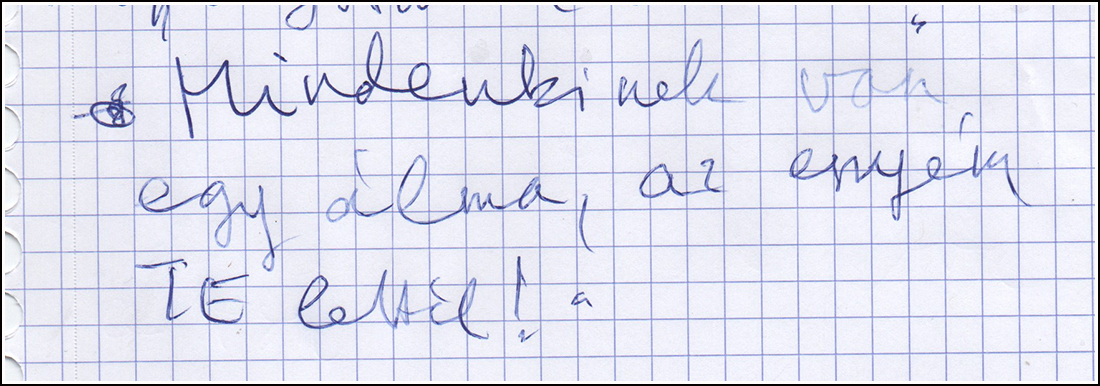 Mindenkinek van
egy álma, az enyém
TE lettél!